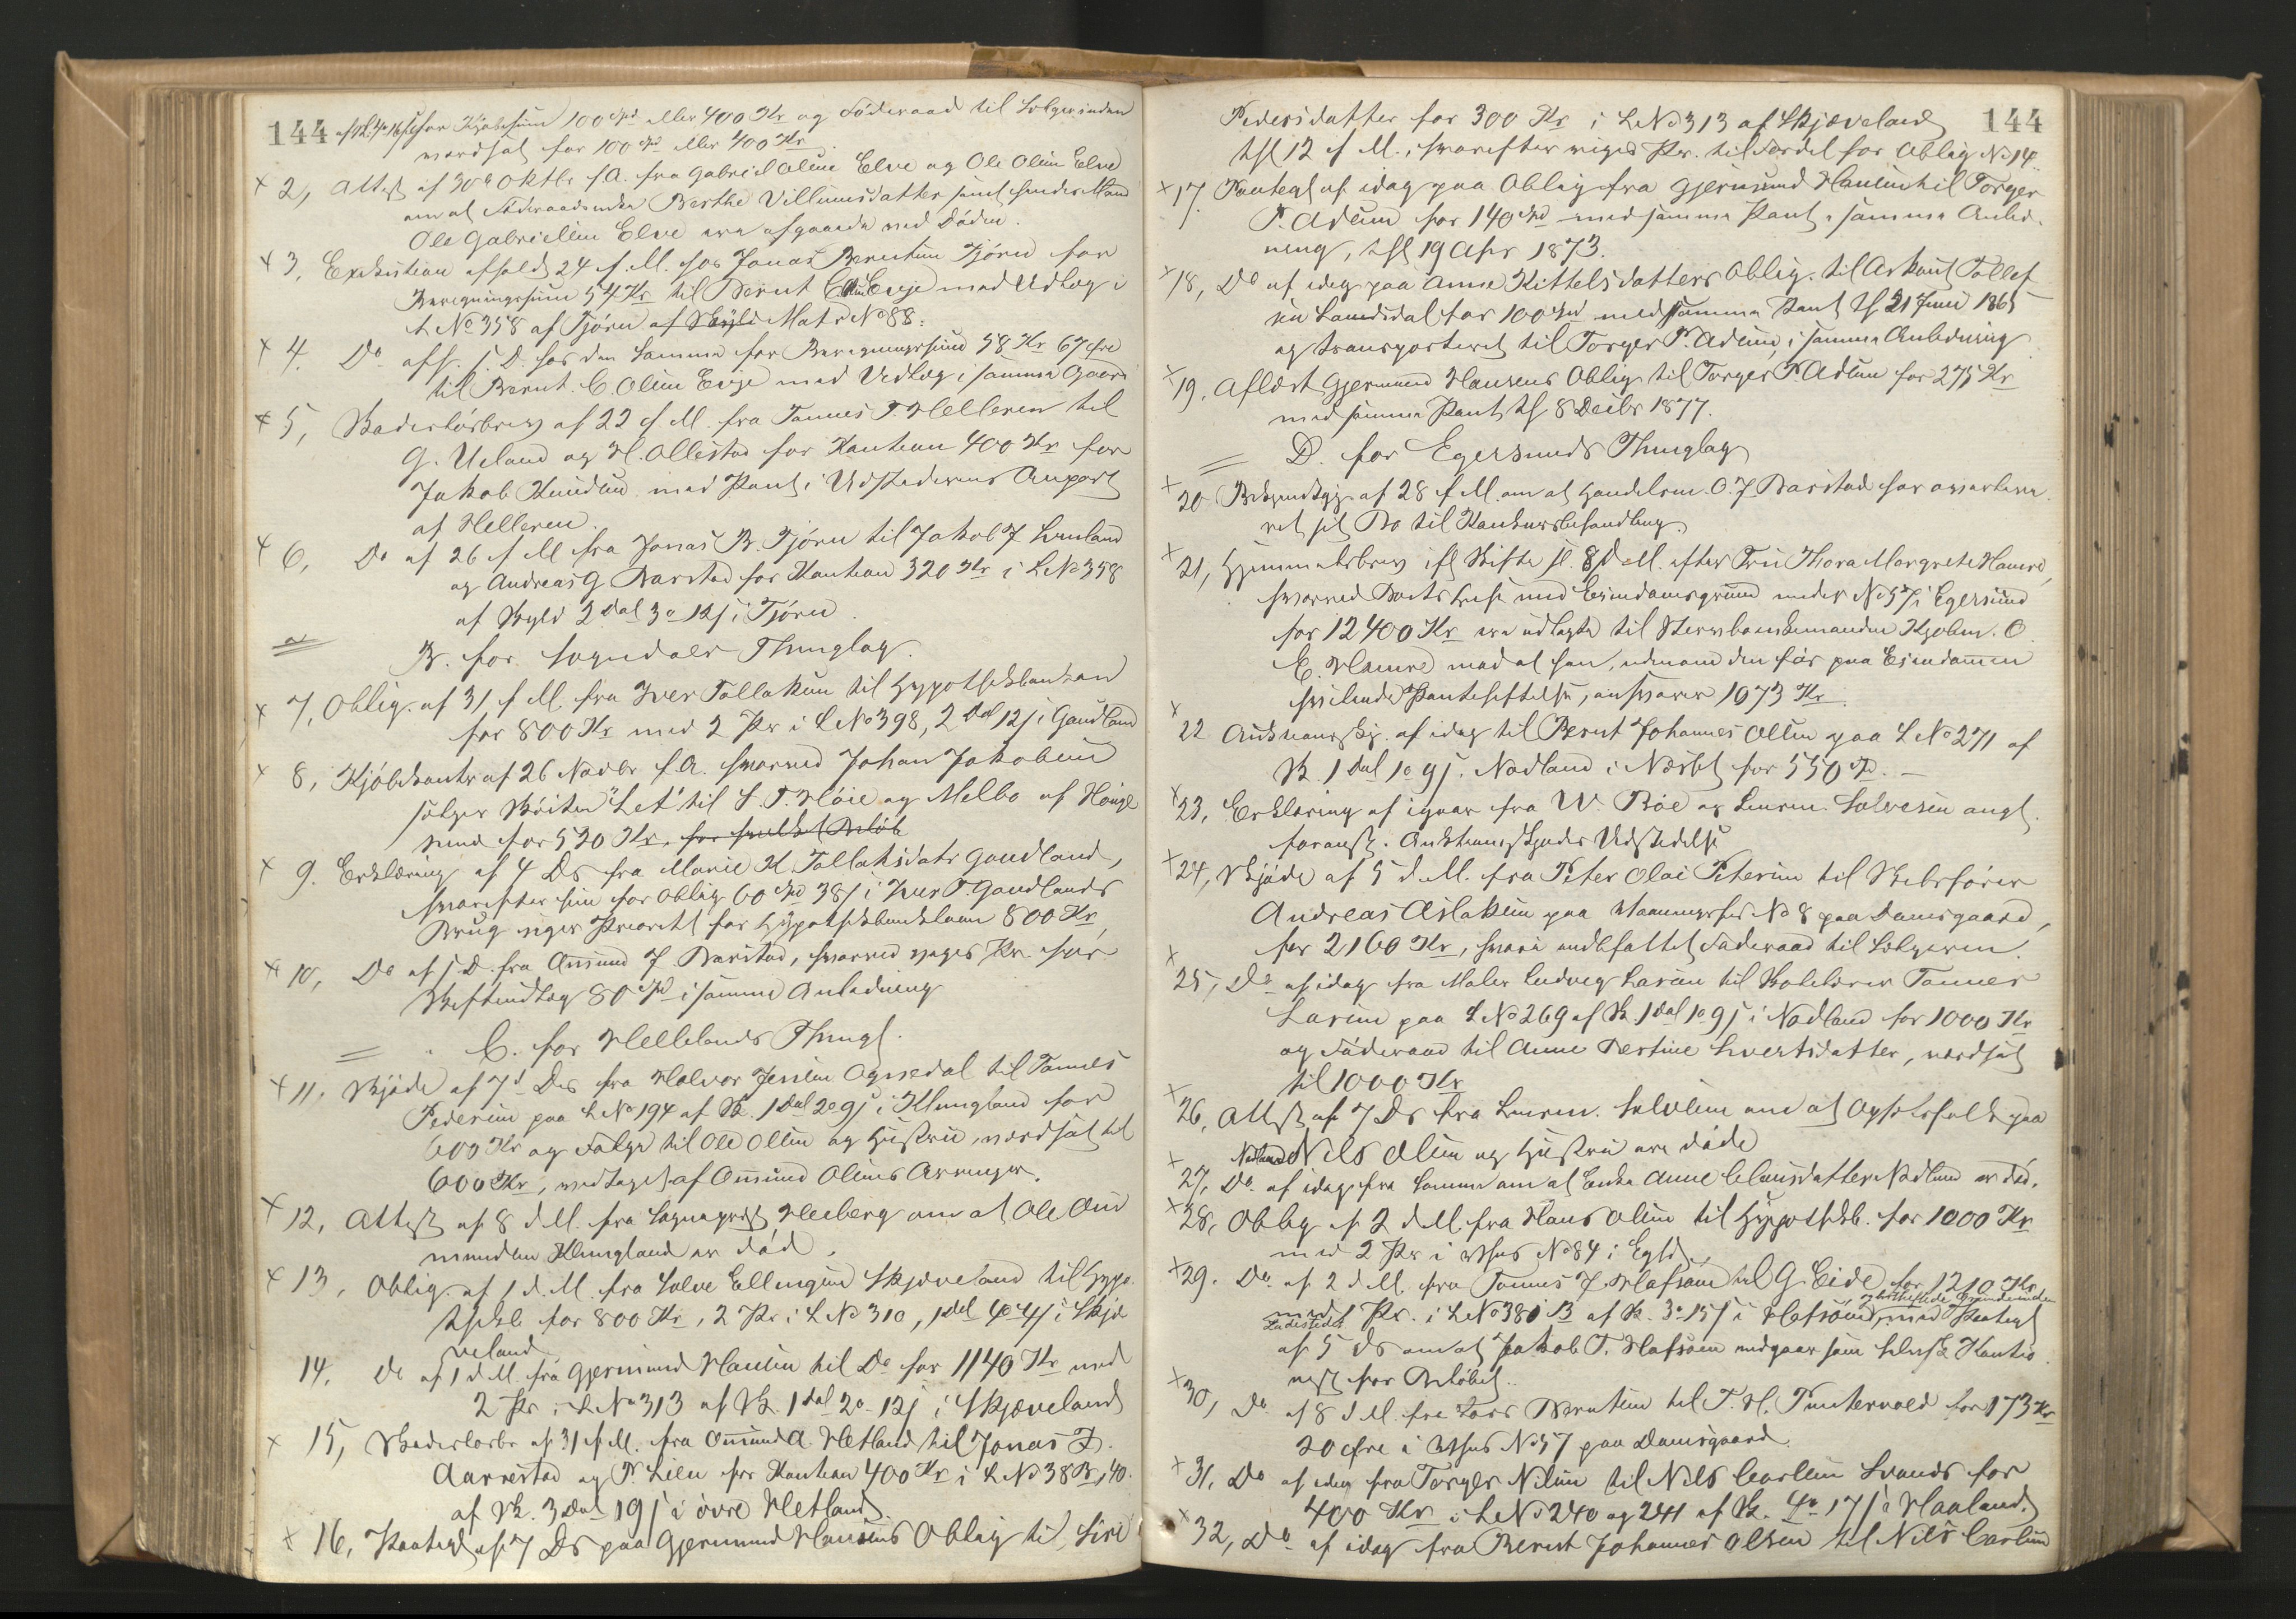 144 af Sk. 4 o 16 s for Kjøbesum 100 Spd eller 400 Kr og Föderaad til Sælgerinden
værdsat for 100 Spd eller 400 Kr.
2, Attest af 30te Oktbr f.A. fra Gabriel Olsen Elve og Ole Olsen Elve
om at Föderaadsenke Berthe Villumsdatter samt hendes Mand
Ole Gabrielsen Elve ere afgaaede ved Döden.
3, Exekution afholdt 24 f. M. hos Jonas Berntsen Tjörn for
Beregningssum 54 Kr til Bernt C. Olsen Eeje med Udlæg i
L No 358 af Tjörn af Skyld Matr No 88.
4. Do afh. s. D. hos den Samme for Beregningssum 58 Kr 67 öre
til Bernt C. Olsen Eeje med Udlæg i samme Gaard
5, Skadeslösbrev af 22 f. M. fra Tönnes T. Helleren til
G. Ueland og H. Ollestad for Kaution 400 Kr for
Jakob Knudsen med Pant i Udstederens Anpart
af Helleren.
6, Do af 26 f M fra Jonas B. Tjörn til Jakob J. Lunland
og Andreas G Barstad for Kaution 320 Kr i L No 358
af Skyld 2 Dal 3 o 12 s i Tjörn.
B. for Sogndals Thinglag.
7, Oblig. af 31 f M. fra Iver Tollaksen til Hypothekbanken
for 800 Kr med 2 Pr i L No 398, 2 Dal 12 s i Gaudland
8, Kjöbekontr af 26 Novbr f.A. hvorved Johan Jakobsen
sælger Sköiten "Let" til S. T. Höie og Melbo af Hougesund
sund for 530 Kr. for hvilket Belöb
9. Erklæring af 4 Ds fra Marie H. Tollaksdatr Gaudland,
hvorefter hun for Oblig 60 Spd 38 s i Iver T. Gaudlands
Brug viger Prioritet for Hypothekbanklaan 800 Kr,
10, Do af s D. fra Omund J Barstad, hvorved viges Pr. for
Skifteudlæg 80 Spd i samme Anledning
C. for Hellelands Thingl.
11, Skjöde af 7d Ds fra Halvor Jensen Ognedal til Tönnes
Pedersen paa L No 194 af Sk. 1 Dal 2 o 9 s i Klungland for
600 Kr og Følge til Ole Olsen og Hustru, værdsat til
600 Kr, vedtaget af Omund Olsens Arvinger.
12, Attest af 8 d M. fra Sogneprest Heiberg om at Ole Om
mundsen Klungland er död.
13, Oblig. af 1 d. M. fra Salve Ellingsen Skjæveland til Hypo
thekb for 800 Kr, 2 Pr i L No 310, 1 Dal 4 o 4 s i Skjæ
veland
14, Do af 1 d M. fra Gjermund Hansen til Do for 1140 Kr med
2 Pr i L No 313 af Sk. 1 Dal 2 o 12 s i Skjæveland
15, Skadeslösbr af 31 f M. fra Omund A. Hetland til Jonas T.
Aarrestad og P. Lien for Kaution 400 Kr i L No 38 B, 40
af Sk. 3 Dal 19 s i övre Hetland.
16, Paategn af 7 Ds paa Gjermund Hansens Oblig til Siri
Pedersdatter for 300 Kr i L No 313 af Skjæveland 144
thl 12 f M., hvorefter viges Pr. til Fordel for Oblig No 14.
17. Paategn af idag paa Oblig fra Gjermund Hansen til Torger
P. Adsen for 140 Spd med samme Pant i samme Anled-
ning, thl 19 Apr 1873.
18, Do af idag paa Anne Kittelsdatters Oblig. til Askout Tollef
sen Lomeldal for 100 Spd med samme Pant thl 21 Juni 1865
og transporteret til Torger P. Adsen, i samme Anledning
19, Aflæst Gjermund Hansens Oblig til Torger P Adsen for 275 Kr
med samme Pant thl 8 Decbr 1877.
D. for Egersunds Thinglag
20 Bekjendtgj. af 28 f M. om at Handelsm. O. J Barstad har overleve
ret sit Bo til Konkursbehandling
21, Hjemmelsbrev ifl Skifte sl. 8 d M. efter Fru Thora Margrete Hamre,
hvorved Boets Huse med Eiendomsgrund under No 57 i Egersund
for 12400 Kr ere udlagte til Stervboenkemanden Kjøbm. O.
E. Hamre med at han, udenom den før paa Eiendommen
hvilende Panteheftelse, ansvarer 1073 Kr.
22 Auktionsskj. af idag til Bernt Johannes Olsen paa L No 271 af
Sk. 1 Dal 1 o 9 s. Nodland i Næsbet for 550 Spd. —
23, Erklæring af igaar fra W. Böe og Lensm. Salvesen angl.
foranst. Auktionsskjödes Udstedelse
24, Skjöde af 5 d. M. fra Peter Olai Petersen til Skibsförer
Andreas Aslaksen paa Vaaningshus No 8 paa Damsgaard,
for 2160 Kr, hvori indbefattet Föderaad til Sælgeren.
25, Do af idag fra Maler Ludvig Larsen til Skolelærer Tönnes
Larsen paa L No 269 af Sk. 1 Dal 1 o 9 s i Nodland for 1000 Kr
og Föderaad til Anne Bertine Svertsdatter, værdsat
til 1000 Kr
26, Attest af 7 Ds fra Lensm. Salvesen om at Opsidsfolk paa
Nodland Nils Olsen og Hustru ere döde
27, Do af idag fra Samme om at Enke Anne Clausdatter Nodland er död.
28, Oblig af 2 d M. fra Hans Olsen til Hypothekb. for 1000 Kr
med 2 Pr i Vhus No 84 i Egsd.
29. Do af 2 d M. fra Tönnes J. Hafsöen til G. Eide for 1210 Kr
med 1 Pr. i L No 380 B af Sk. 3 o 15 s i Hafsöen, med Paategn
Ladestedet
af 5 Ds om at Jakob T. Hafsöen indgaar som Selvsk. Kautio
nist for Belöbet.
30, Do af 8 d M. fra Lars Berntsen til P. H. Puntervold for 173 Kr
20 öre i Vhus No 57 paa Damsgaard.
31, Do af idag fra Torger Nilsen til Nils Carlsen Svands for
400 Kr i L No 240 og 241 af Sk. 4 o 17 s i Haaland.
32, Do af idag fra Bernt Johannes Olsen til Nils Carlsen